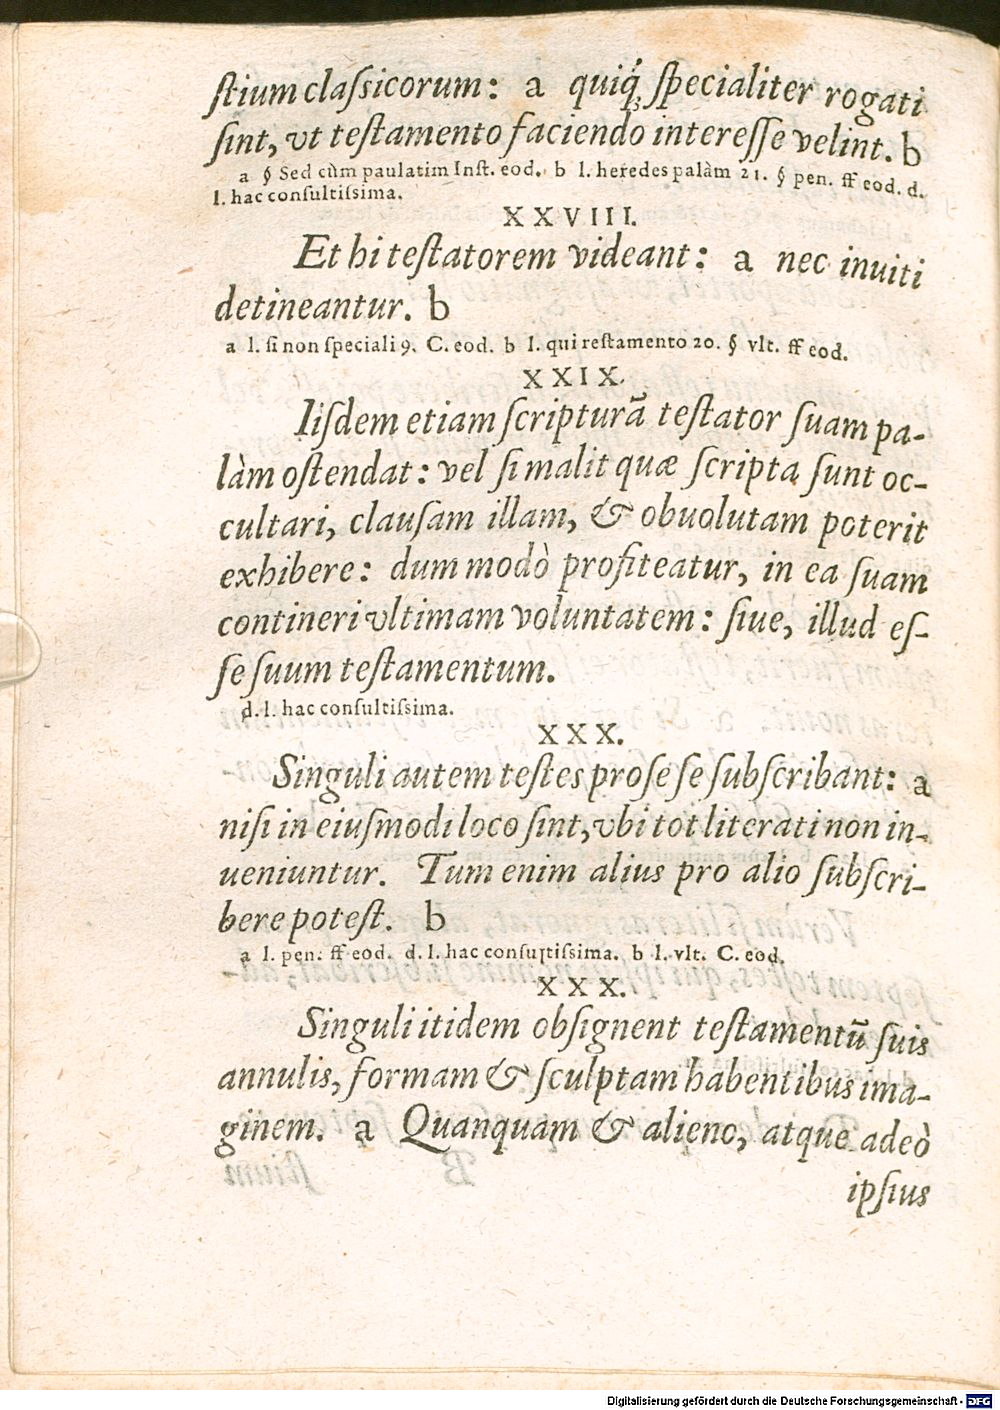 ſtium claſsicorum: a quiq́ꝫ ſpecialiter rogati
ſint, vt teſtamento faciendo intereſſe velint. b
a § Sed cùm paulatim Inſt. eod. b l. heredes palàm 21. § pen. ff eod. d.
l. hac conſultiſsima.
XXVIII.
Et hi teſtatorem videant: a nec inuiti
detineantur. b
a l. ſi non ſpeciali 9. C. eod. b l. qui teſtamento 20. § vlt. ff eod.
XXIX.
Iiſdem etiam ſcripturã teſtator ſuam pa-
làm oſtendat: vel ſi malit quæ ſcripta ſunt oc-
cultari, clauſam illam, & obuolutam poterit
exhibere: dum modò profiteatur, in ea ſuam
contineri vltimam voluntatem: ſiue, illud eſ-
ſe ſuum teſtamentum.
d. l. hac conſultiſsima.
XXX.
Singuli autem teſtes pro ſe ſe ſubſcribant: a
niſi in eiuſmodi loco ſint, vbi tot literati non in-
ueniuntur. Tum enim alius pro alio ſubſcri-
bere poteſt. b
a l. pen. ff eod. d. l. hac conſultiſsima. b l. vlt. C. eod.
XXX.
Singuli itidem obſignent teſtamentũ ſuis
annulis, formam & ſculptam habentibus ima-
ginem. a Quanquam & alieno, atque adeò
ipſius
Digitalisierung gefördert durch die Deutsche Forschungsgemeinschaft - DFG